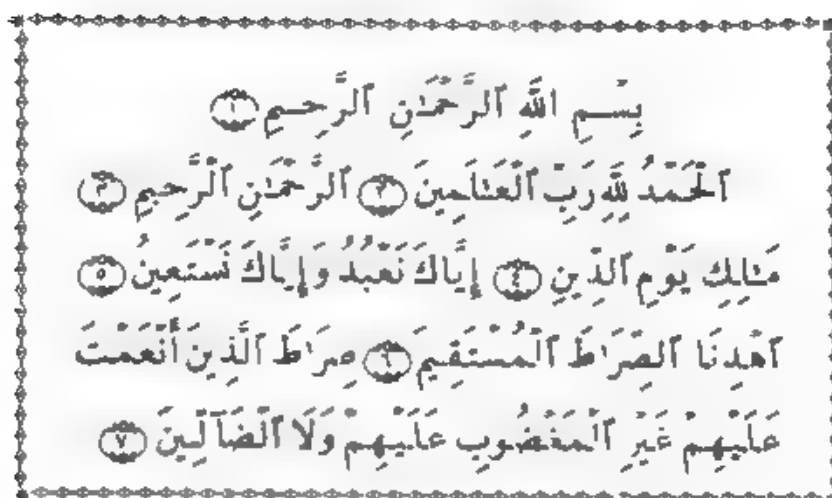 بِسْمِ اللَّهِ ٱلرَّحْمَٰنِ ٱلرَّحِيمِ ١
ٱلْحَمْدُ لِلَّهِ رَبِّ ٱلْعَٰلَمِينَ ٢ ٱلرَّحْمَٰنِ ٱلرَّحِيمِ ٣
مَٰلِكِ يَوْمِ ٱلدِّينِ ٤ إِيَّاكَ نَعْبُدُ وَإِيَّاكَ نَسْتَعِينُ ٥
ٱهْدِنَا ٱلصِّرَٰطَ ٱلْمُسْتَقِيمَ ٦ صِرَٰطَ ٱلَّذِينَ أَنْعَمْتَ
عَلَيْهِمْ غَيْرِ ٱلْمَغْضُوبِ عَلَيْهِمْ وَلَا ٱلضَّآلِّينَ ٧